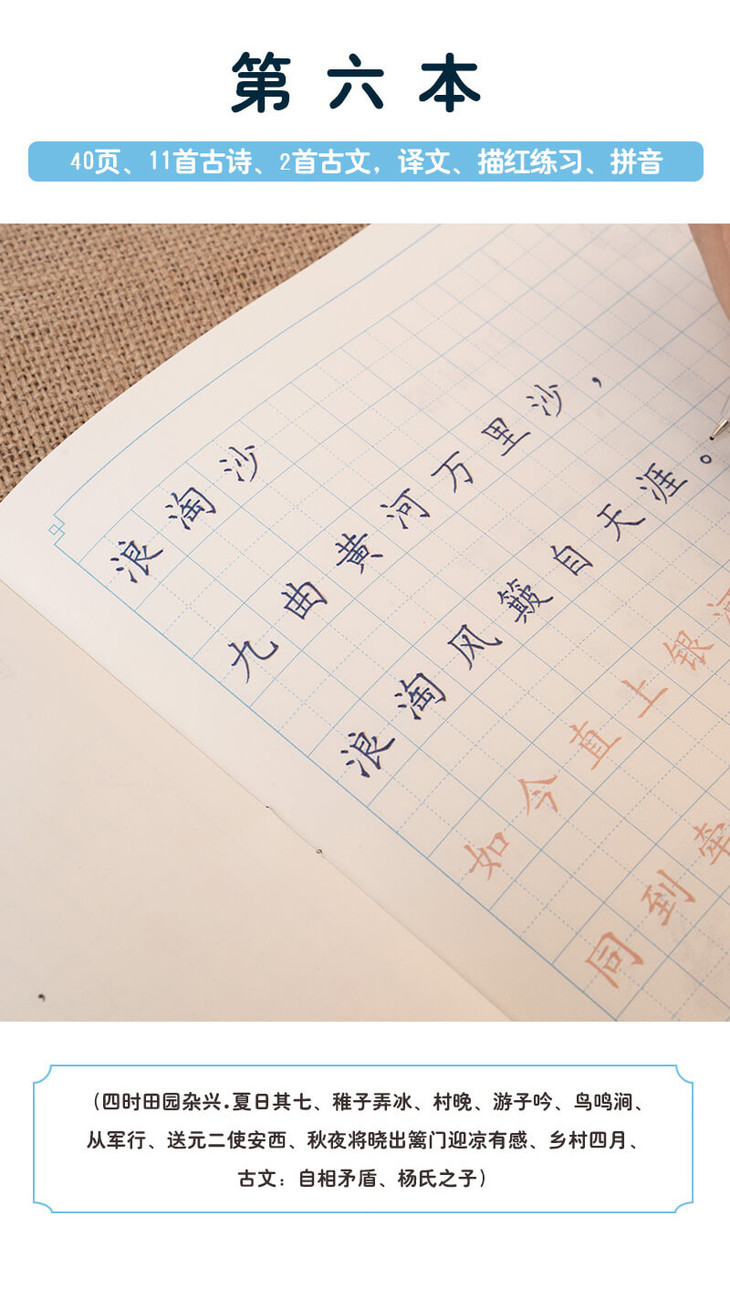 第六本
40页、11首古诗、2首古文，译文、描红练习、拼音
浪淘沙
九曲黄河万里沙，
浪淘风簸自天涯。
如今直上银河
同到牵
（四时田园杂兴.夏日其七、稚子弄冰、村晚、游子吟、鸟鸣涧、
从军行、送元二使安西、秋夜将晓出篱门迎凉有感、乡村四月、
古文：自相矛盾、杨氏之子）